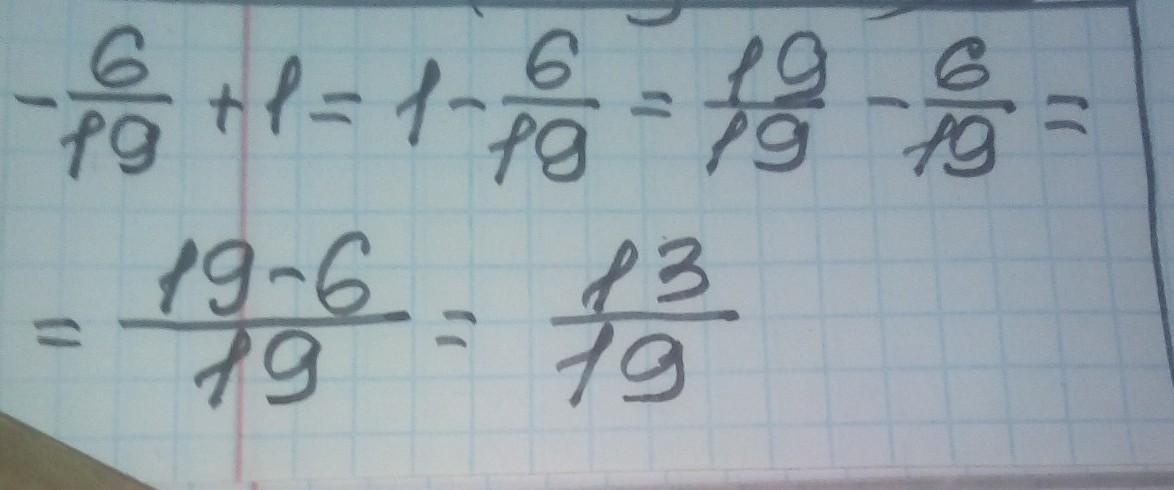 -6/19 + 1 = 1 - 6/19 = 19/19 - 6/19 =
= 19-6/19 = 13/19